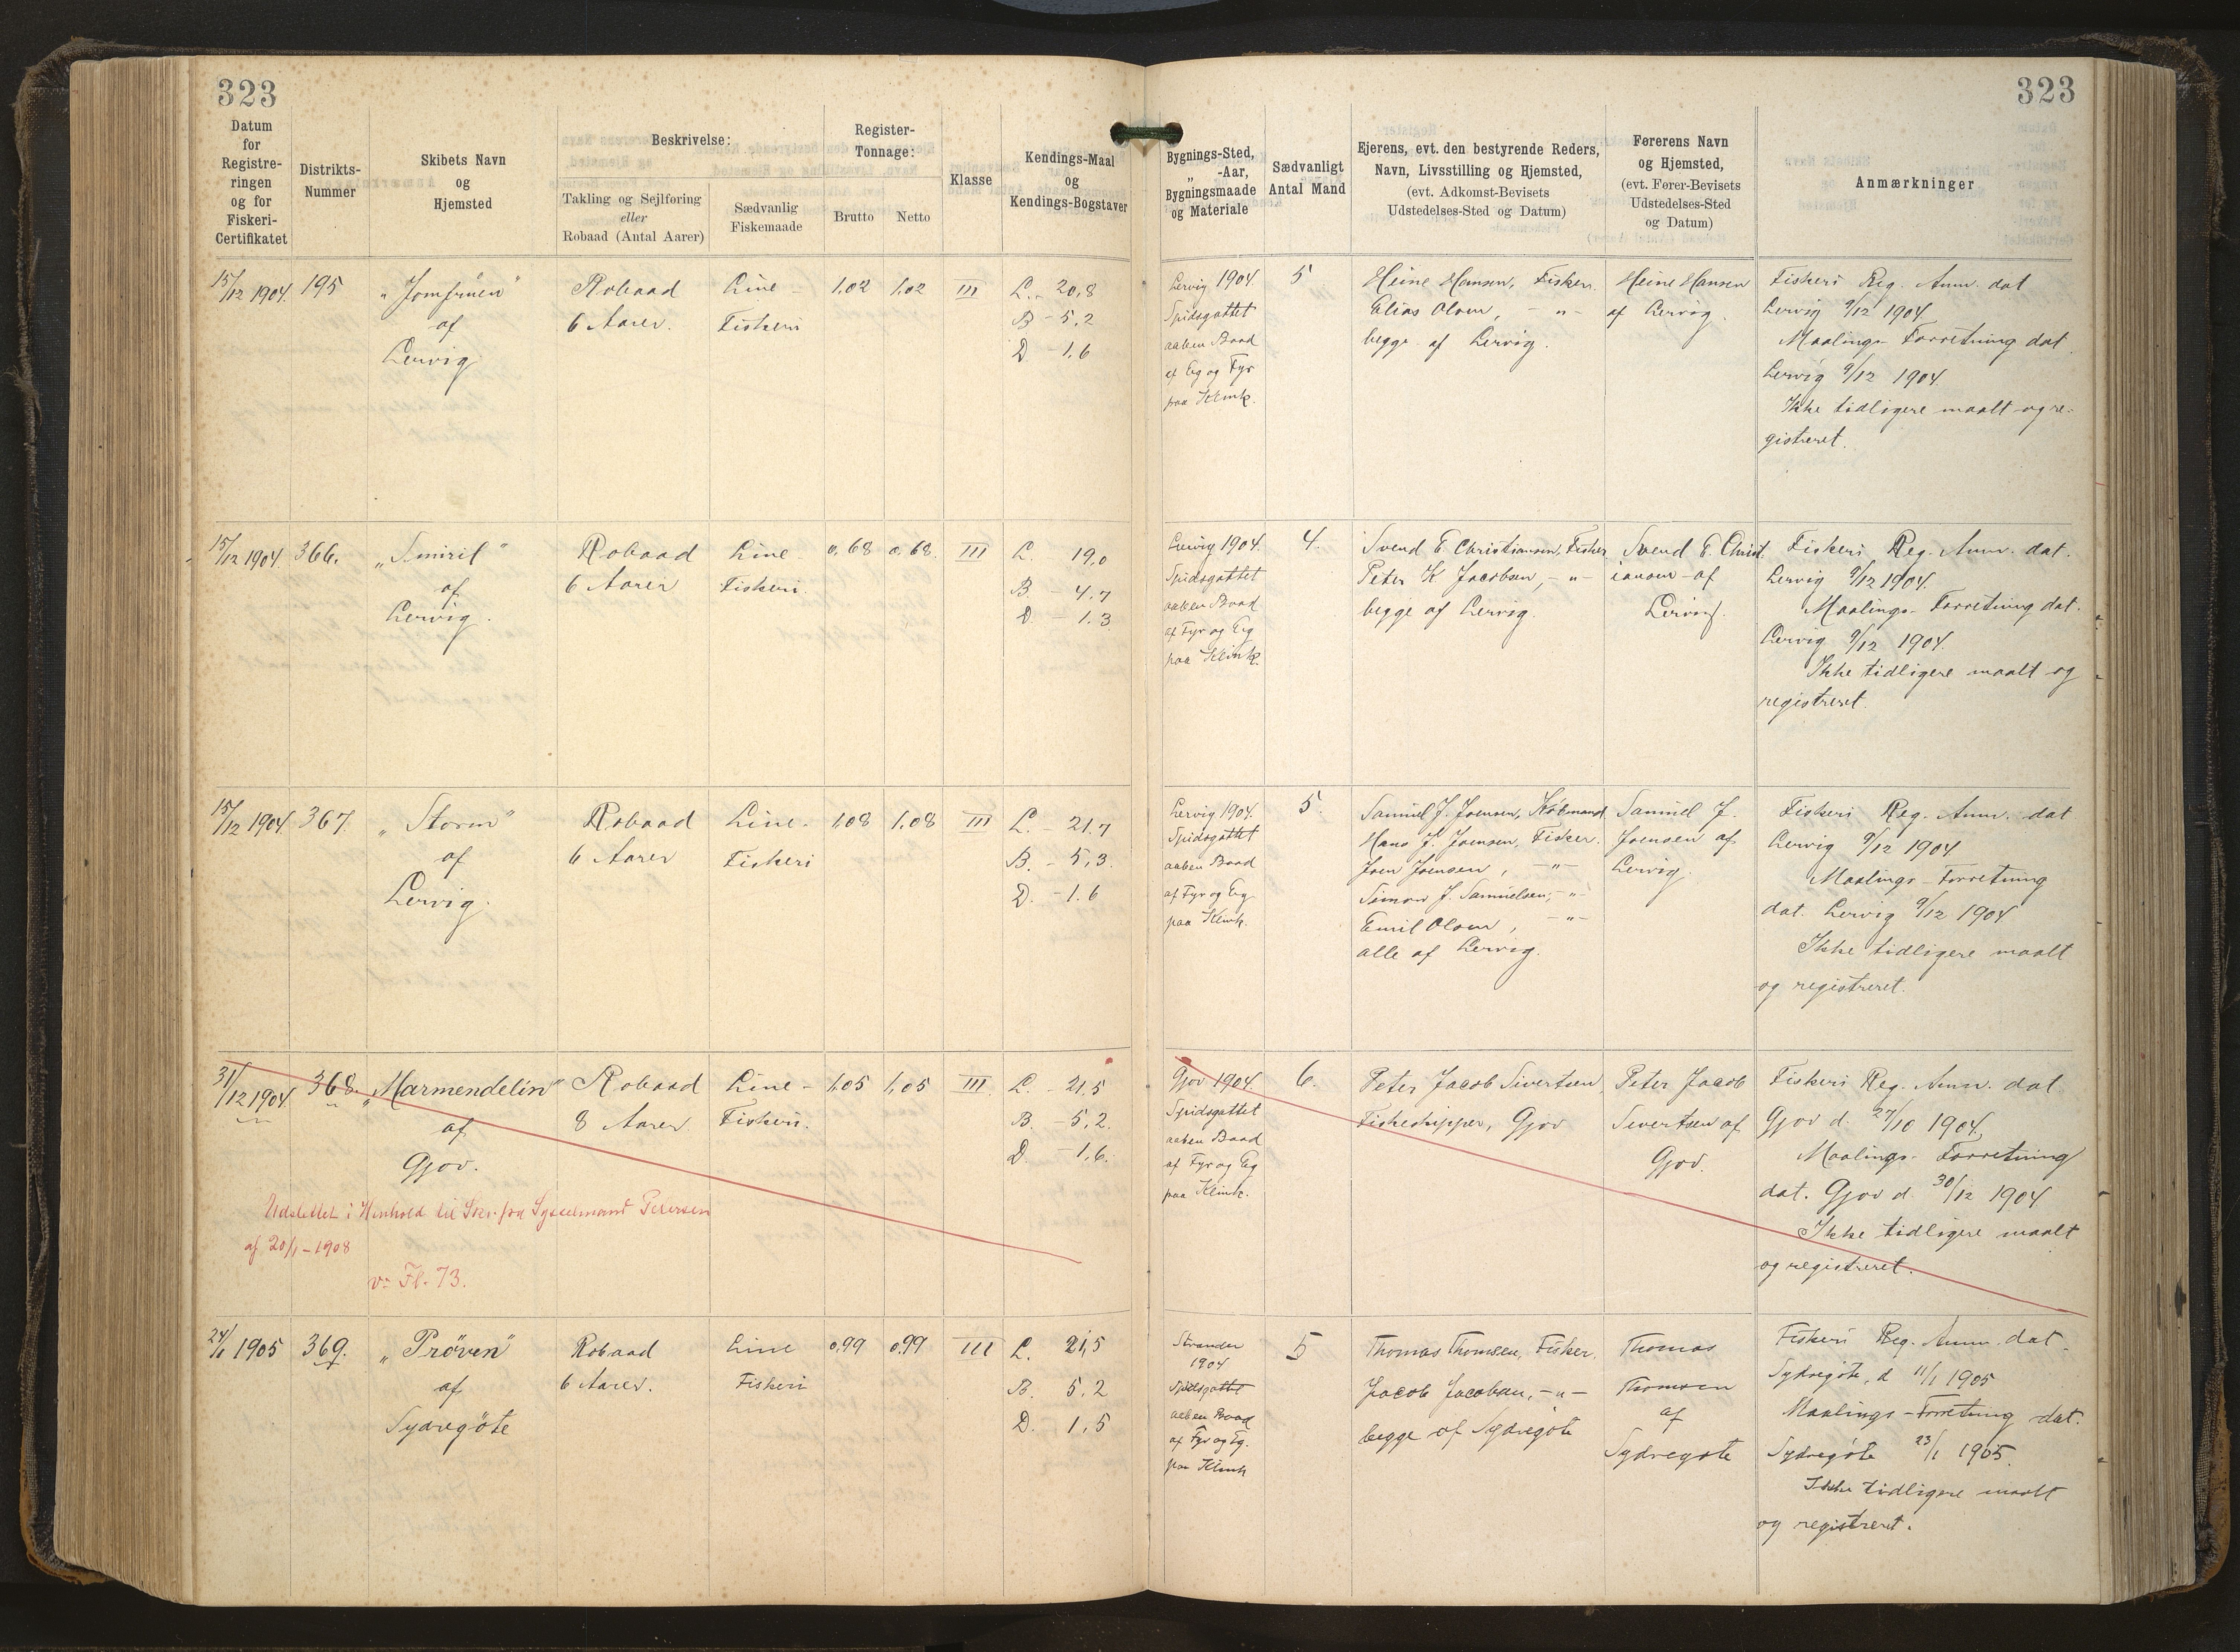 323
323
Datum
for
Registre-
ringen
og for
Fiskeri-
Certifikatet
Distrikts-
Nummer
Skibets Navn
og
Hjemsted
Beskrivelse:
Takling og Sejlføring
eller
Robaad (Antal Aarer)
Sædvanlig
Fiskemaade
Register-
Tonnage:
Brutto
Netto
Klasse
Kendings-Maal
og
Kendings-Bogstaver
Bygnings-Sted,
„ -Aar,
Bygningsmaade
og Materiale
Sædvanligt
Antal Mand
Ejerens, evt. den bestyrende Reders,
Navn, Livsstilling og Hjemsted,
(evt. Adkomst-Bevisets
Udstedelses-Sted og Datum)
Førerens Navn
og Hjemsted,
(evt. Fører-Bevisets
Udstedelses-Sted
og Datum)
Anmærkninger
15/12 1904. 195
„Jomfruen"
af
Lervig
Robaad
6 Aarer.
Line-
Fiskeri
1,02 1,02 III
L. - 20,8
B - 5,2
D - 1,6
Lervig 1904
Spidsgattet
aaben Baad
af Eg og Fyr
paa Klink.
5
Heine Hansen, Fisker.
Elias Olsen, -"-
begge af Lervig.
Heine Hansen
af Lervig.
Fiskeri Reg. Anm. dat
Lervig 9/12 1904
Maalings-Forretning dat
Lervig 9/12 1904.
Ikke tidligere maalt og re-
gistreret.
15/12 1904. 366.
„Smiril"
af
Lervig.
Robaad
6 Aarer
Line-
Fiskeri.
0,68 0,68. III
L. 19,0
B. - 4,7
D - 1.3
Lervig 1904.
Spidsgattet
aaben Baad
af Fyr og Eg
paa Klink.
4.
Svend E. Christiansen, Fisker
Peter K Jacobsen, -"-
begge af Lervig.
Svend E. Christ.
iansen af
Lervig.
Fiskeri Reg. Anm. dat.
Lervig 9/12 1904.
Maalings-Forretning dat.
Lervig 9/12 1904.
Ikke tidligere maalt og
registreret.
15/12 1904. 367.
„Storm"
af
Lervig.
Robaad
6 Aarer
Line-
Fiskeri
1,08 1,08 III
L. - 21,7
B. - 5,3.
D. - 1.6
Lervig 1904.
Spidsgattet
aaben Baad
af Fyr og Eg
paa Klink.
5.
Samuel J. Joensen, Købmand
Hans J. Joensen, Fisker.
Joen Joensen, -"-
Simon J. Samuelsen, -"-
Emil Olsen, -"-
alle af Lervig.
Samuel J.
Joensen af
Lervig.
Fiskeri Reg. Anm. dat
Lervig 9/12 1904
Maalings-Forretning
dat. Lervig 9/12 1904
Ikke tidligere maalt
og registreret.
31/12 1904. 368.
„Marmendelin"
af
Gjov.
Robaad
8 Aarer
Line-
Fiskeri.
1,05 1,05 III.
L. 21,5
B. - 5,2.
D. - 1,6.
Gjov 1904.
Spidsgattet
aaben Baad
af Fyr og Eg
paa Klink.
6.
Peter Jacob Sivertsen,
Fiskeskipper, Gjov
Peter Jacob
Sivertsen af
Gjov.
Fiskeri Reg. Anm. dat.
Gjov d. 27/10 1904.
Maalings-Forretning
dat. Gjov d. 30/12 1904
Ikke tidligere maalt
og registreret.
Udslettet i Henhold til Skr. fra Sysselmand Petersen
af 20/1-1908
v: Fl. 73.
24/1 1905 369.
„Pröven"
af
Sydregöte
Robaad
6 Aarer.
Line
Fiskeri
0,99 0,99 III
L. 21,5
B. 5,2
D. 1,5
Strander
1904
Spidsgattet
aaben Baad
af Fyr og Eg.
paa Klink
5
Thomas Thomsen, Fisker.
Jacob Jacobsen, -"-
begge af Sydregöte
Thomas
Thomsen
af
Sydregöte
Fiskeri Reg. Anm. dat.
Sydregöte, d 11/1 1905
Maalings-Forretning dat.
Sydregöte 23/1 1905.
Ikke tidligere maalt
og registreret.